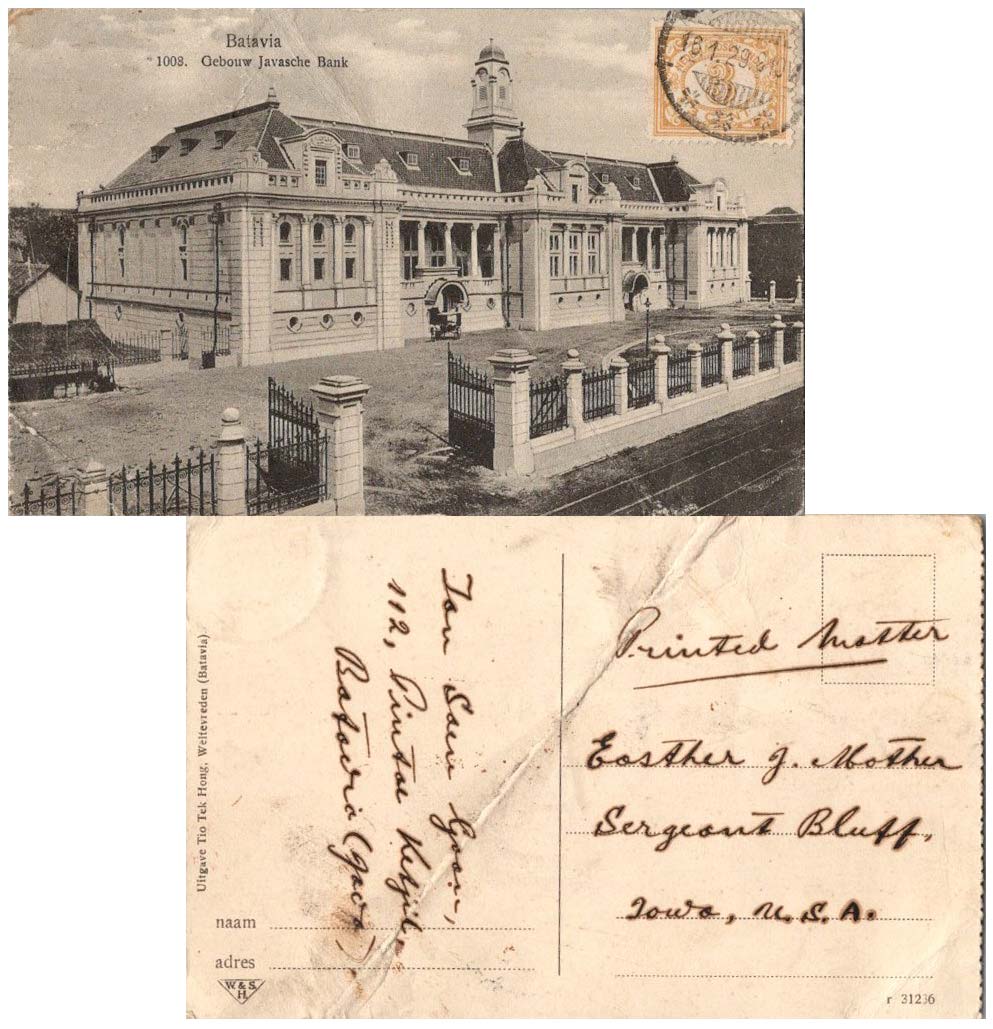 Batavia
1008. Gebouw Javasche Bank
3
16.1.29
Uitgave Tio Tek Hong, Weltevreden (Batavia)
Tan Soen Goan,
112, Pintoe Ketjil,
Batavia (Java)
naam
adres
W. & S.
H.
Printed Matter
Easther J. Mother
Sergeant Bluff,
Iowa, U.S.A.
r 31236